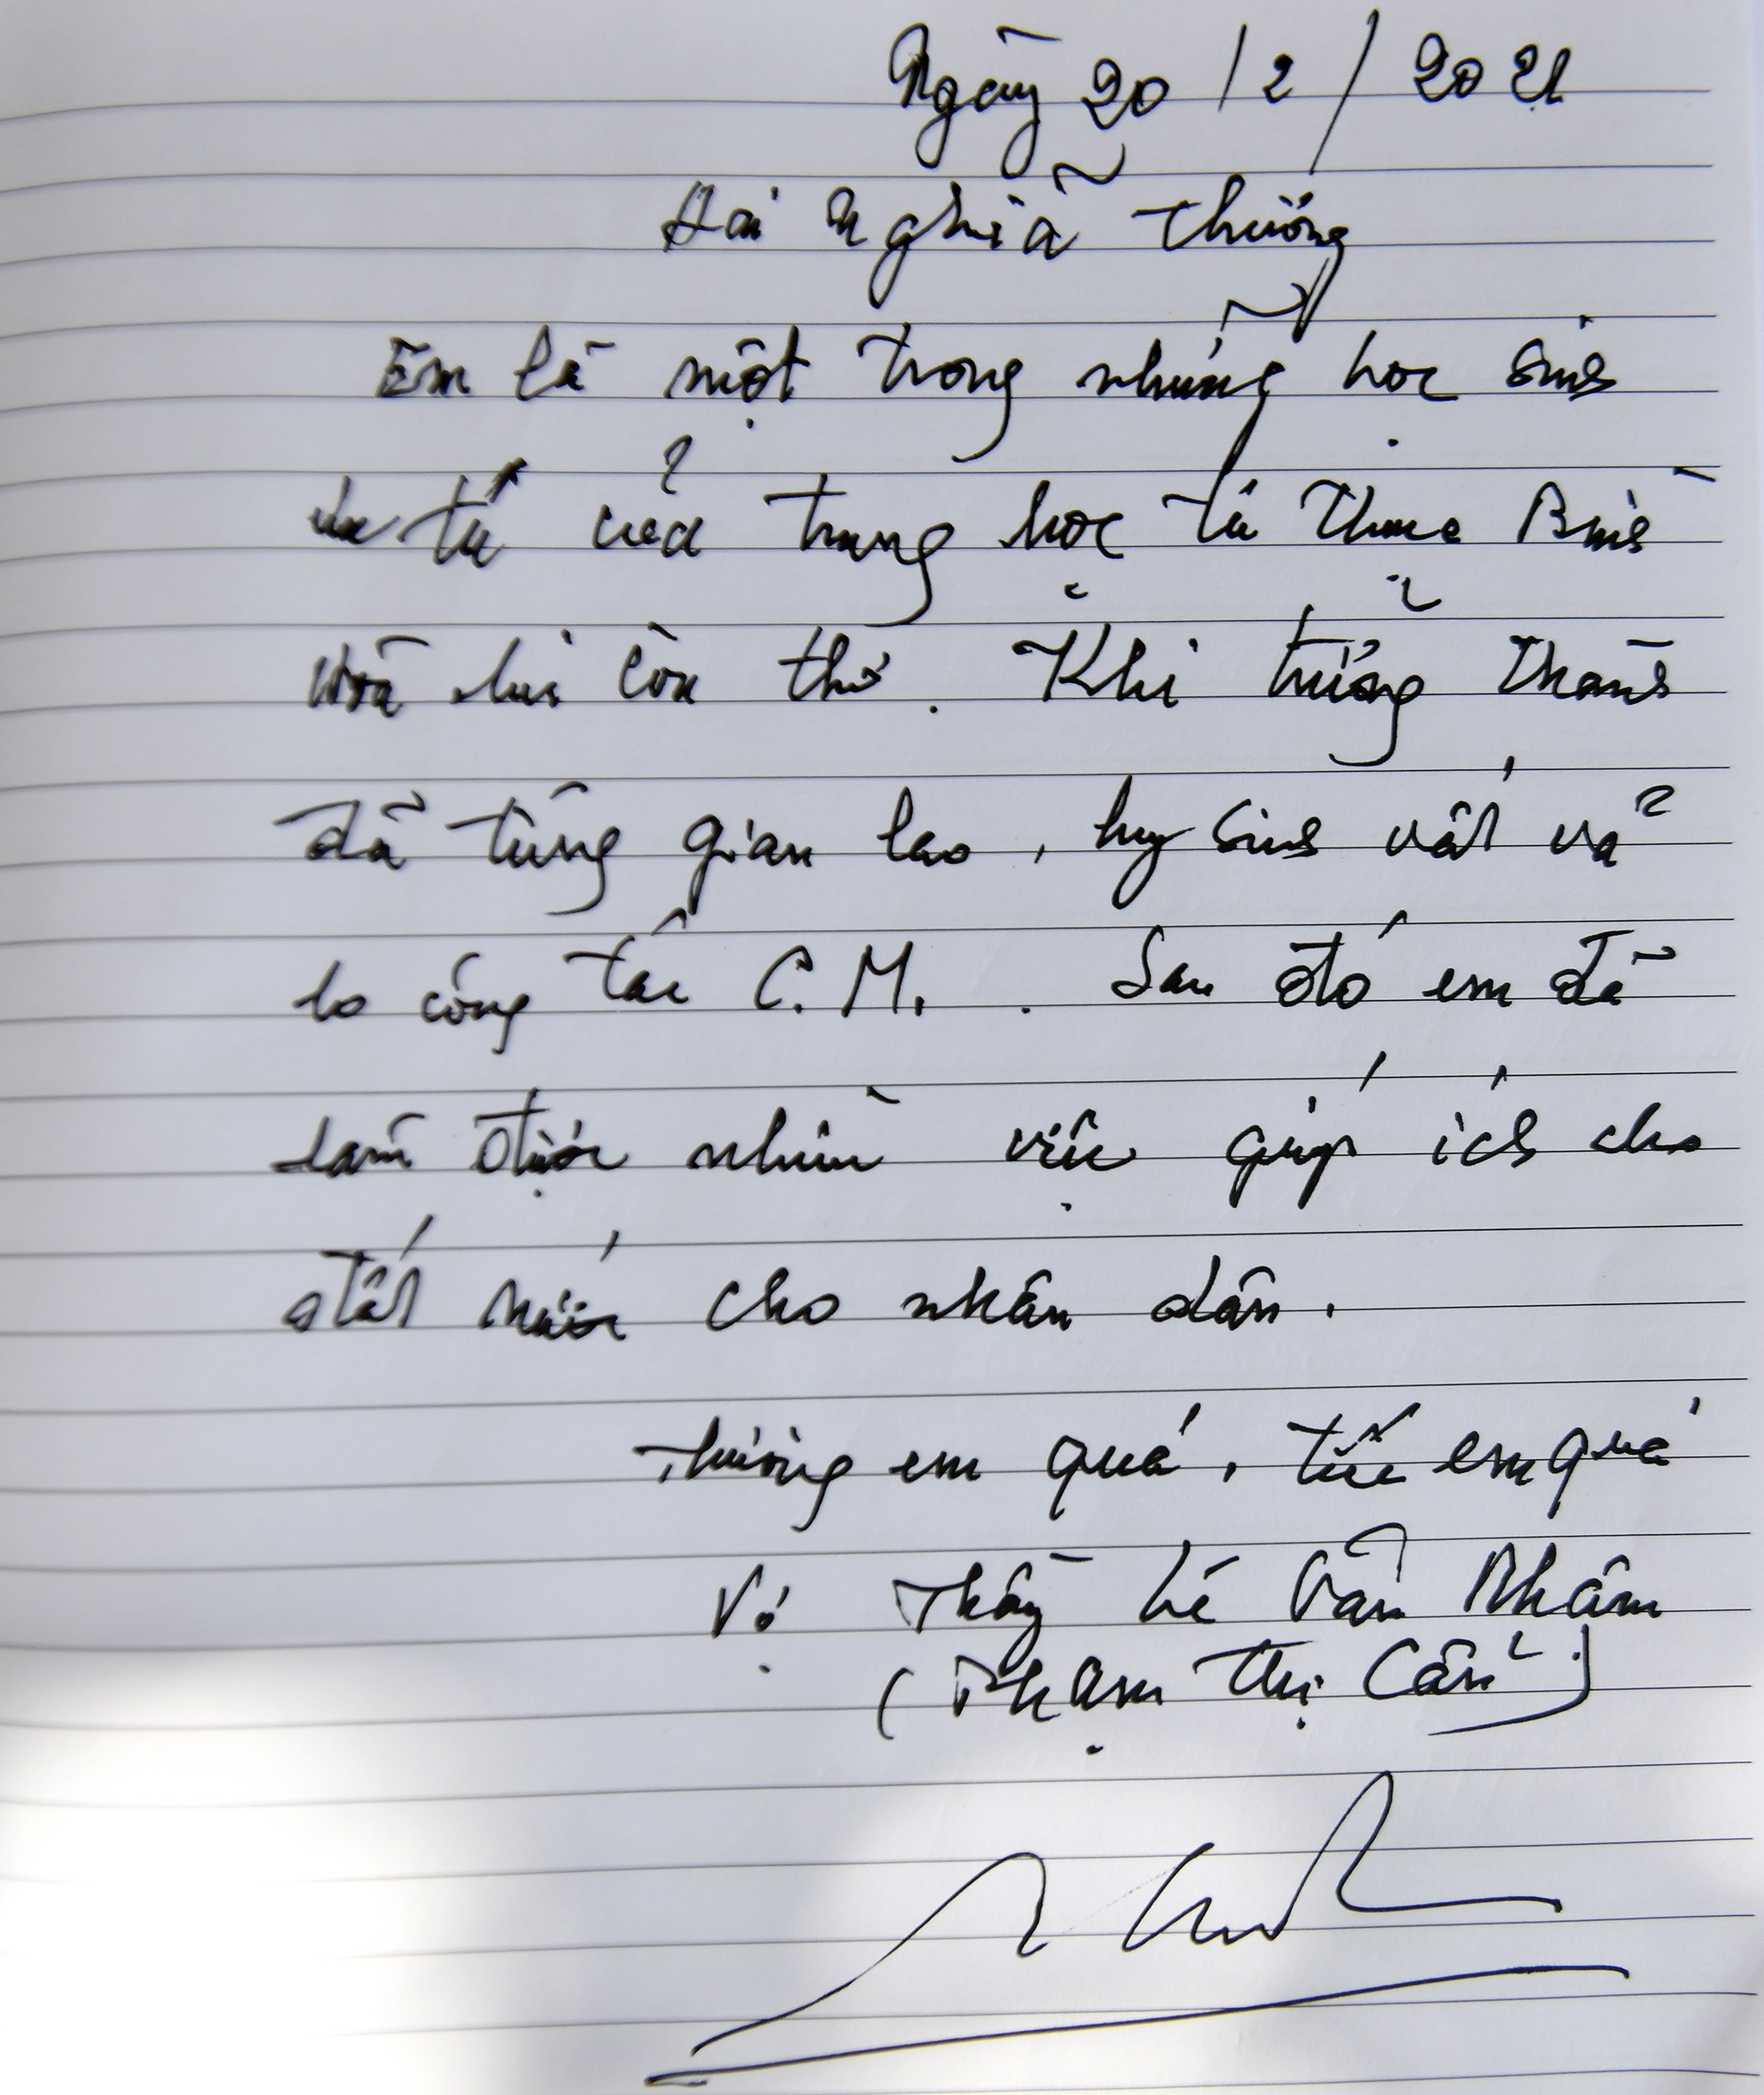 Ngày 20/2/2021
Hai Nghĩa thương
Em là một trong những học sinh
ưu tú của trung học tư thục Bình
Hoà lúc còn thơ. Khi trưởng thành
đã từng gian lao, hy sinh vất vả
lo công tác C.M. . Sau đó em đã
làm được nhiều việc giúp ích cho
đất nước cho nhân dân.
Thương em quá, tiếc em quá
Vợ Thầy Lê Văn Nhâm
(Phạm Thị Cẩn)